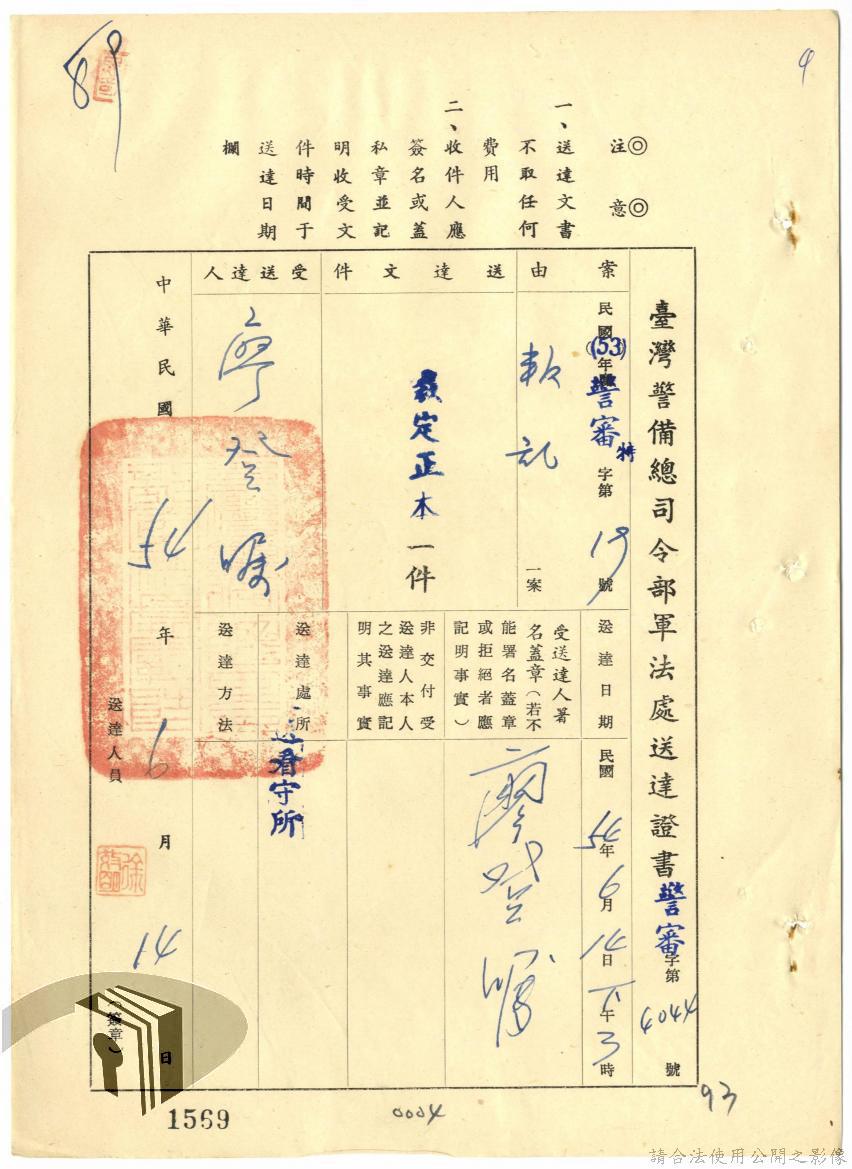 89
4
◎注意◎
一、送達文書
不取任何
費用
二、收件人應
簽名或蓋
私章並記
明收受文
件時間于
送達日期
欄
臺灣警備總司令部軍法處送達證書警審字第4044號
案由
民國(53)年警審特字第19號
叛乱
一案
送達文件
裁定正本一件
受送達人
廖登矚
送達日期
民國54年6月14日下午3時
受送達人署
名蓋章(若不
能署名蓋章
或拒絕者應
記明事實)
廖登矚
非交付受
送達人本人
之送達應記
明其事實
送達處所
看守所
送達方法
中華民國54年6月14日
送達人員
(簽章)
93
1569
0004
請合法使用公開之影像